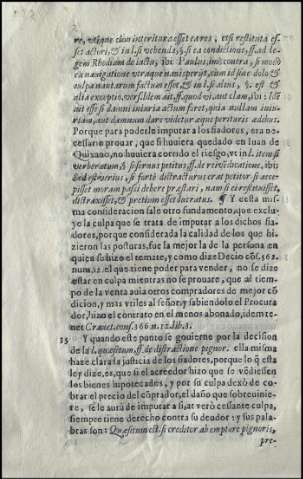 re, utique cùm interitura esset ea res, etsi restituta es-
set actori, & in l. si vehenda, §. si ea conditione, ff. ad le-
gem Rhodiam de iactu, ibi: Paulus, imò contra, si modò
ea navigatione utraque navis perijt, cum id sine dolo &
culpa nautarum factum esset, & in l. si alius, §. est &
alia exceptio, vers. Idem ait, ff. quod vi, aut clam, ibi:
ait esse si damni iniuria actum foret, quia nullam iniu-
riam, aut damnum dare videtur æque perituris ædibus.
Porque para poderlo imputar a los fiadores, era ne-
cessario provar, que si huviera quedado en Iuan de
Quixano, no huviera corrido el riesgo, vt in l. item si
verberatum, §. si servus petitus, ff. de rei vindicatione, ibi:
Sed est verius, si fortè distracturus erat petitor si acce-
pisset moram passi debere præstari, nam si ei restituisset,
distraxisset, & pretium esset lucratus. ¶ Y en esta mis-
ma consideracion sale otro fundamento, que exclu-
ye la culpa que se trata de imputar a los dichos fia-
dores, porque considerada la calidad de los que hi-
zieron las posturas, fue la mejor la de la persona en
quien se hizo el remate, y como dize Decio cons. 562.
num. 12. el que tiene poder para vender, no se dize
estar en culpa mientras no se provare, que al tiem-
po de la venta avia otros compradores de mejor cõ-
dicion, y mas vtiles al señor, y sabiendolo el Procura-
dor, hizo el contrato en el menos abonado, idem te-
net Cravet. cons. 366. n. 12. lib. 3.
35 Y quando este punto se govierne por la decision
de la l. quæsitum, ff. de distractione pignor. ella misma
haze clara la justicia de los fiadores, porque lo q̃ esta
ley dize, es, que si el acreedor hizo que se vẽdiessen
los bienes hipotecados, y por su culpa dexò de co-
brar el precio del cõprador, el daño que sobreuinie-
re, se le aurà de imputar a si, at verò cessante culpa,
siempre tiene derecho contra su deudor: y sus pala-
bras son: Quæsitum est si creditor ab emptore pignoris,
pre-